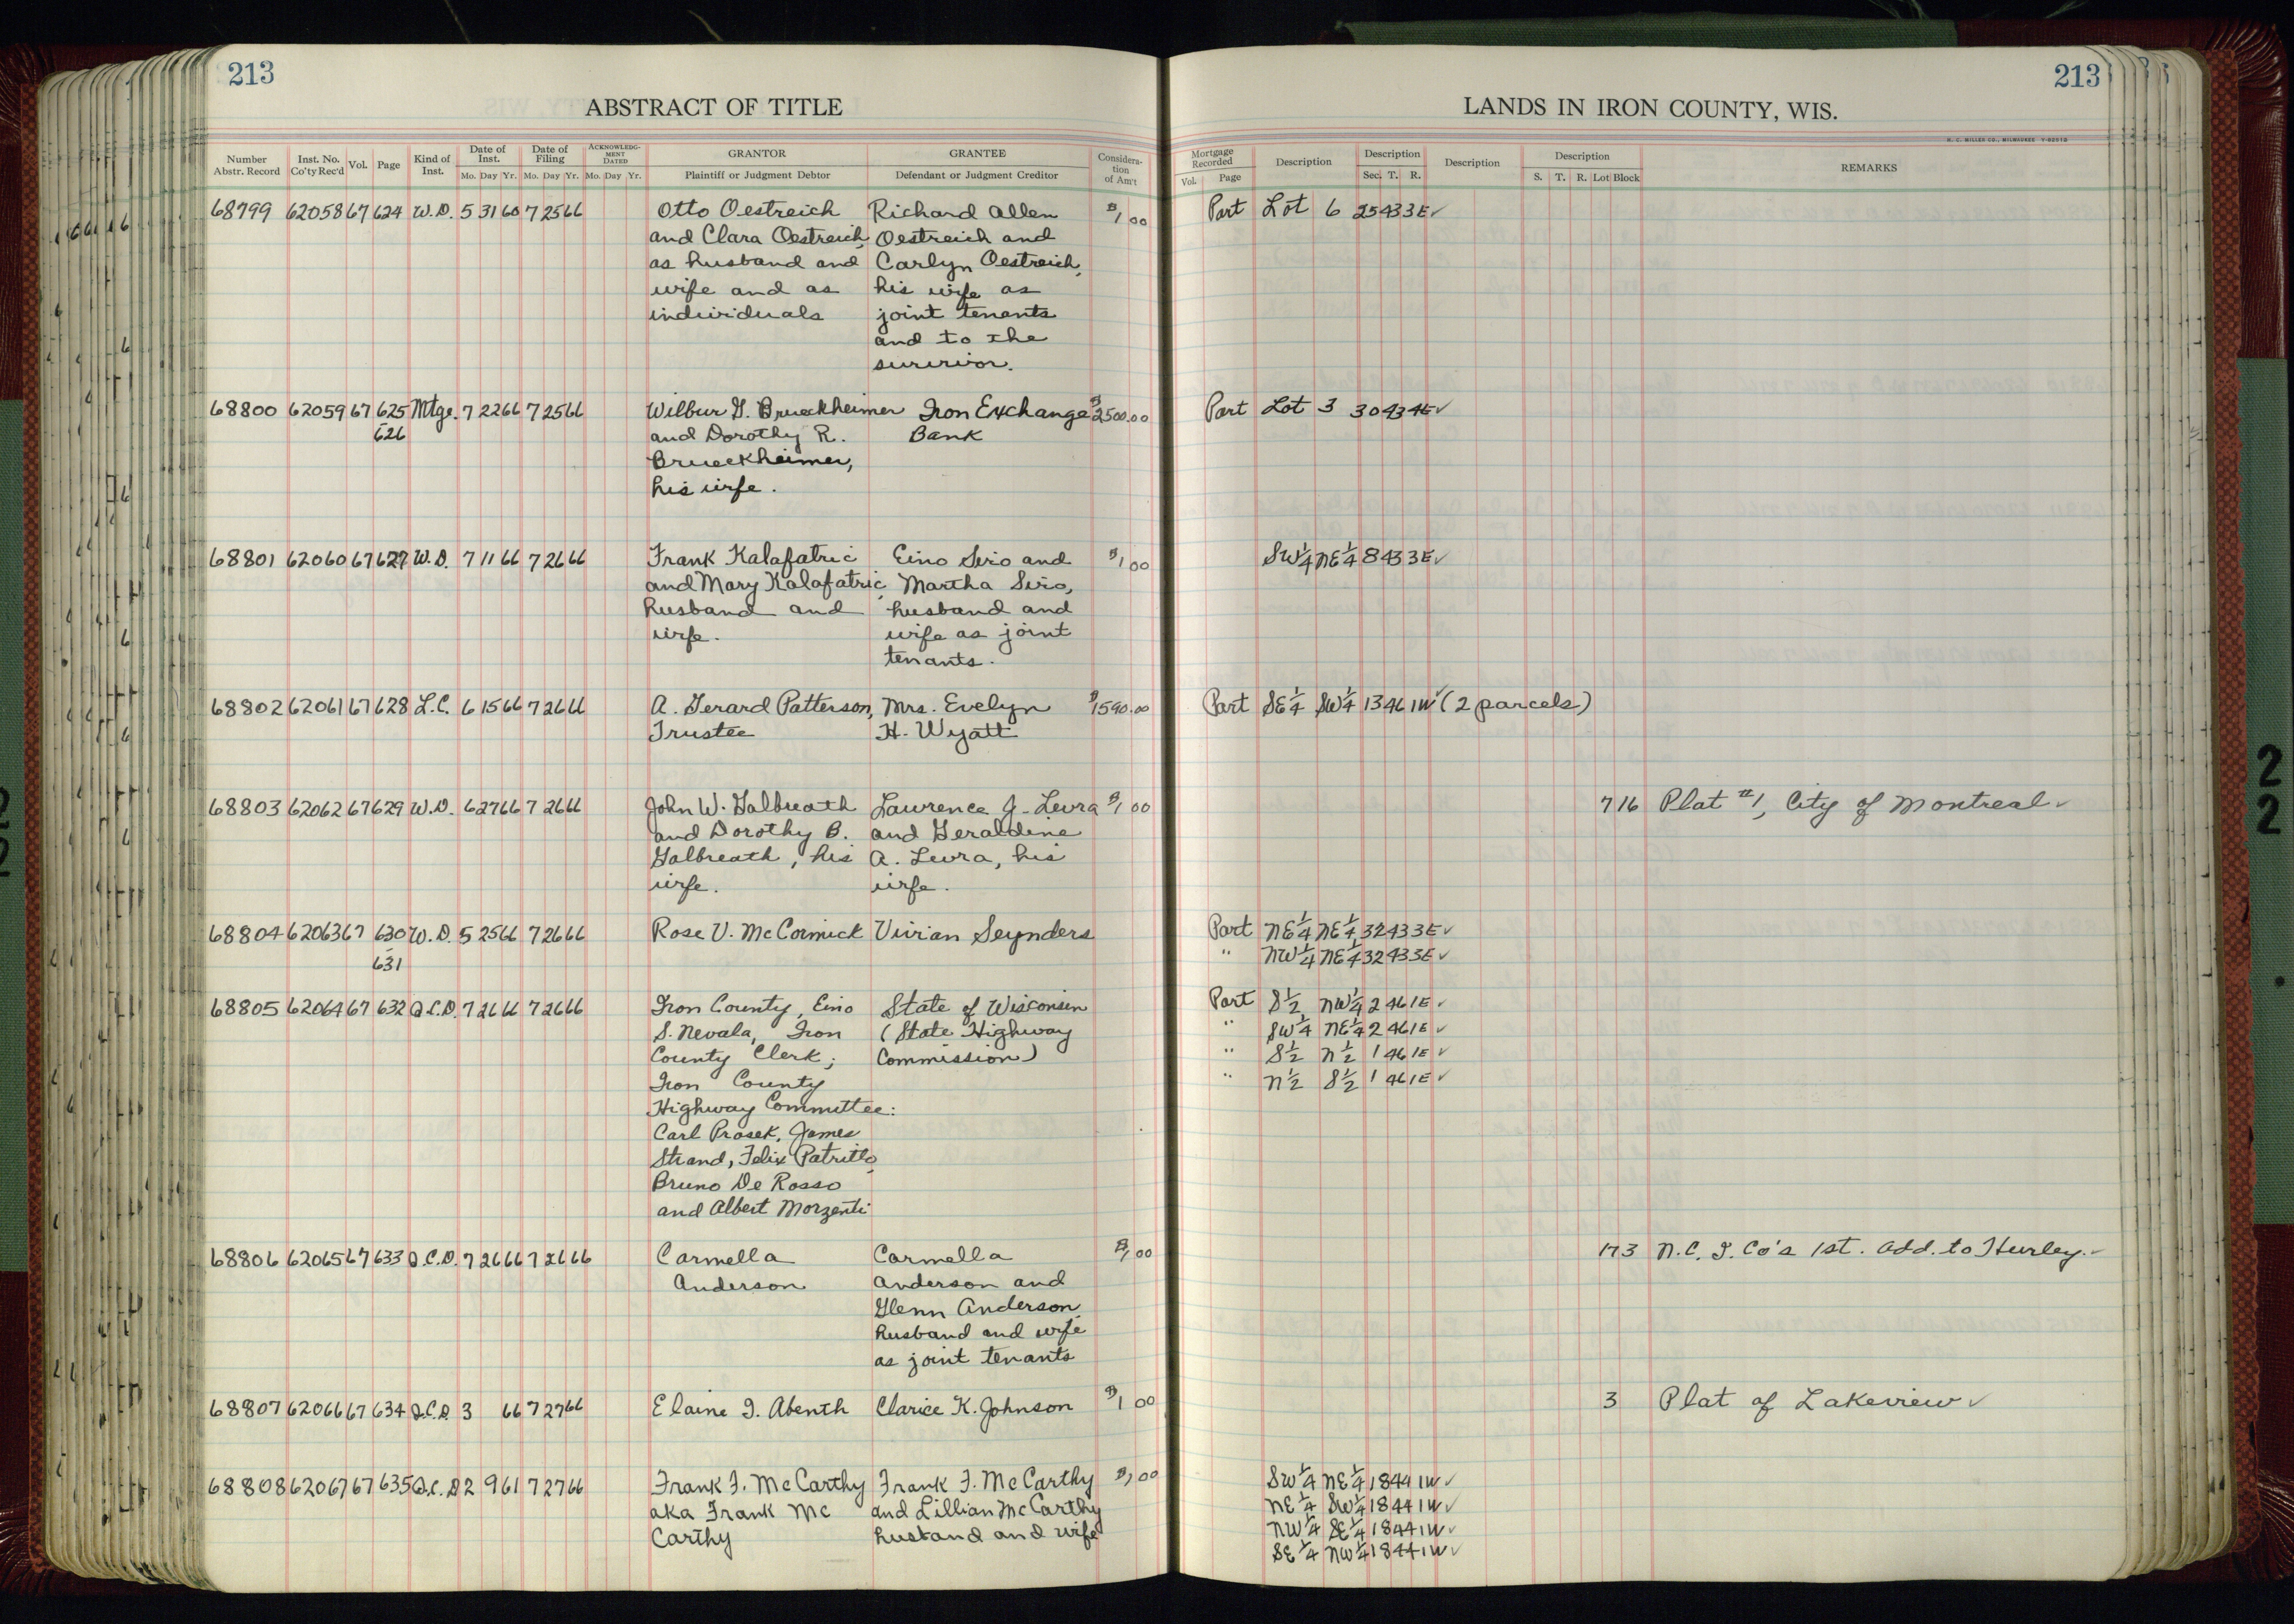 213
ABSTRACT OF TITLE
Number Abstr. Record | Inst. No. Co'ty Rec'd | Vol. | Page | Kind of Inst. | Date of Inst. Mo. Day Yr. | Date of Filing Mo. Day Yr. | ACKNOWLEDGMENT DATED Mo. Day Yr. | GRANTOR Plaintiff or Judgment Debtor | GRANTEE Defendant or Judgment Creditor | Consideration of Am't
68799 62058 67 624 W.D. 5 31 60 7 25 66 Otto Oestreich Richard Allen $1 00
and Clara Oestreich, Oestreich and
as husband and Carlyn Oestreich,
wife and as his wife as
individuals joint tenants
and to the
survivor.
68800 62059 67 625 Mtge. 7 22 66 7 25 66 Wilbur G. Brueckheimer Iron Exchange $2500.00
626 and Dorothy R. Bank
Brueckheimer,
his wife.
68801 62060 67 627 W.D. 7 11 66 7 26 66 Frank Kalafatric Eino Siro and $1 00
and Mary Kalafatric, Martha Siro,
husband and husband and
wife. wife as joint
tenants.
68802 62061 67 628 L.C. 6 15 66 7 26 66 A. Gerard Patterson, Mrs. Evelyn $1590.00
Trustee H. Wyatt
68803 62062 67 629 W.D. 6 27 66 7 26 66 John W. Galbreath Lawrence J. Levra $1 00
and Dorothy B. and Geraldine
Galbreath, his A. Levra, his
wife. wife.
68804 62063 67 630 W.D. 5 25 66 7 26 66 Rose V. McCormick Vivian Seynders
631
68805 62064 67 632 Q.C.D. 7 26 66 7 26 66 Iron County, Eino State of Wisconsin
S. Nevala, Iron (State Highway
County Clerk; Commission)
Iron County
Highway Committee:
Carl Prosek, James
Strand, Felix Patritto,
Bruno De Rosso
and Albert Morzenti
68806 62065 67 633 Q.C.D. 7 26 66 7 26 66 Carmella Carmella $1,00
Anderson Anderson and
Glenn Anderson,
husband and wife
as joint tenants
68807 62066 67 634 Q.C.D. 3 66 7 27 66 Elaine I. Abenth Clarice K. Johnson $1 00
68808 62067 67 635 Q.C.D. 2 9 61 7 27 66 Frank F. McCarthy Frank F. McCarthy $1,00
aka Frank Mc and Lillian McCarthy
Carthy husband and wife
213
LANDS IN IRON COUNTY, WIS.
H. C. MILLER CO., MILWAUKEE
Mortgage Recorded Vol. Page | Description | Description Sec. T. R. | Description | Description S. T. R. Lot Block | REMARKS
Part Lot 6 25 43 3E ✓
Part Lot 3 30 43 4E ✓
SW¼ NE¼ 8 43 3E ✓
Part SE¼ SW¼ 13 46 1W ✓ (2 parcels)
7 16 Plat #1, City of Montreal ✓
Part NE¼ NE¼ 32 43 3E ✓
" NW¼ NE¼ 32 43 3E ✓
Part S½ NW¼ 2 46 1E ✓
" SW¼ NE¼ 2 46 1E ✓
" S½ N½ 1 46 1E ✓
" N½ S½ 1 46 1E ✓
17 3 N.C. I. Co's 1st. Add. to Hurley. ✓
3 Plat of Lakeview ✓
SW¼ NE¼ 18 44 1W ✓
NE¼ SW¼ 18 44 1W ✓
NW¼ SE¼ 18 44 1W ✓
SE¼ NW¼ 18 44 1W ✓
2
2